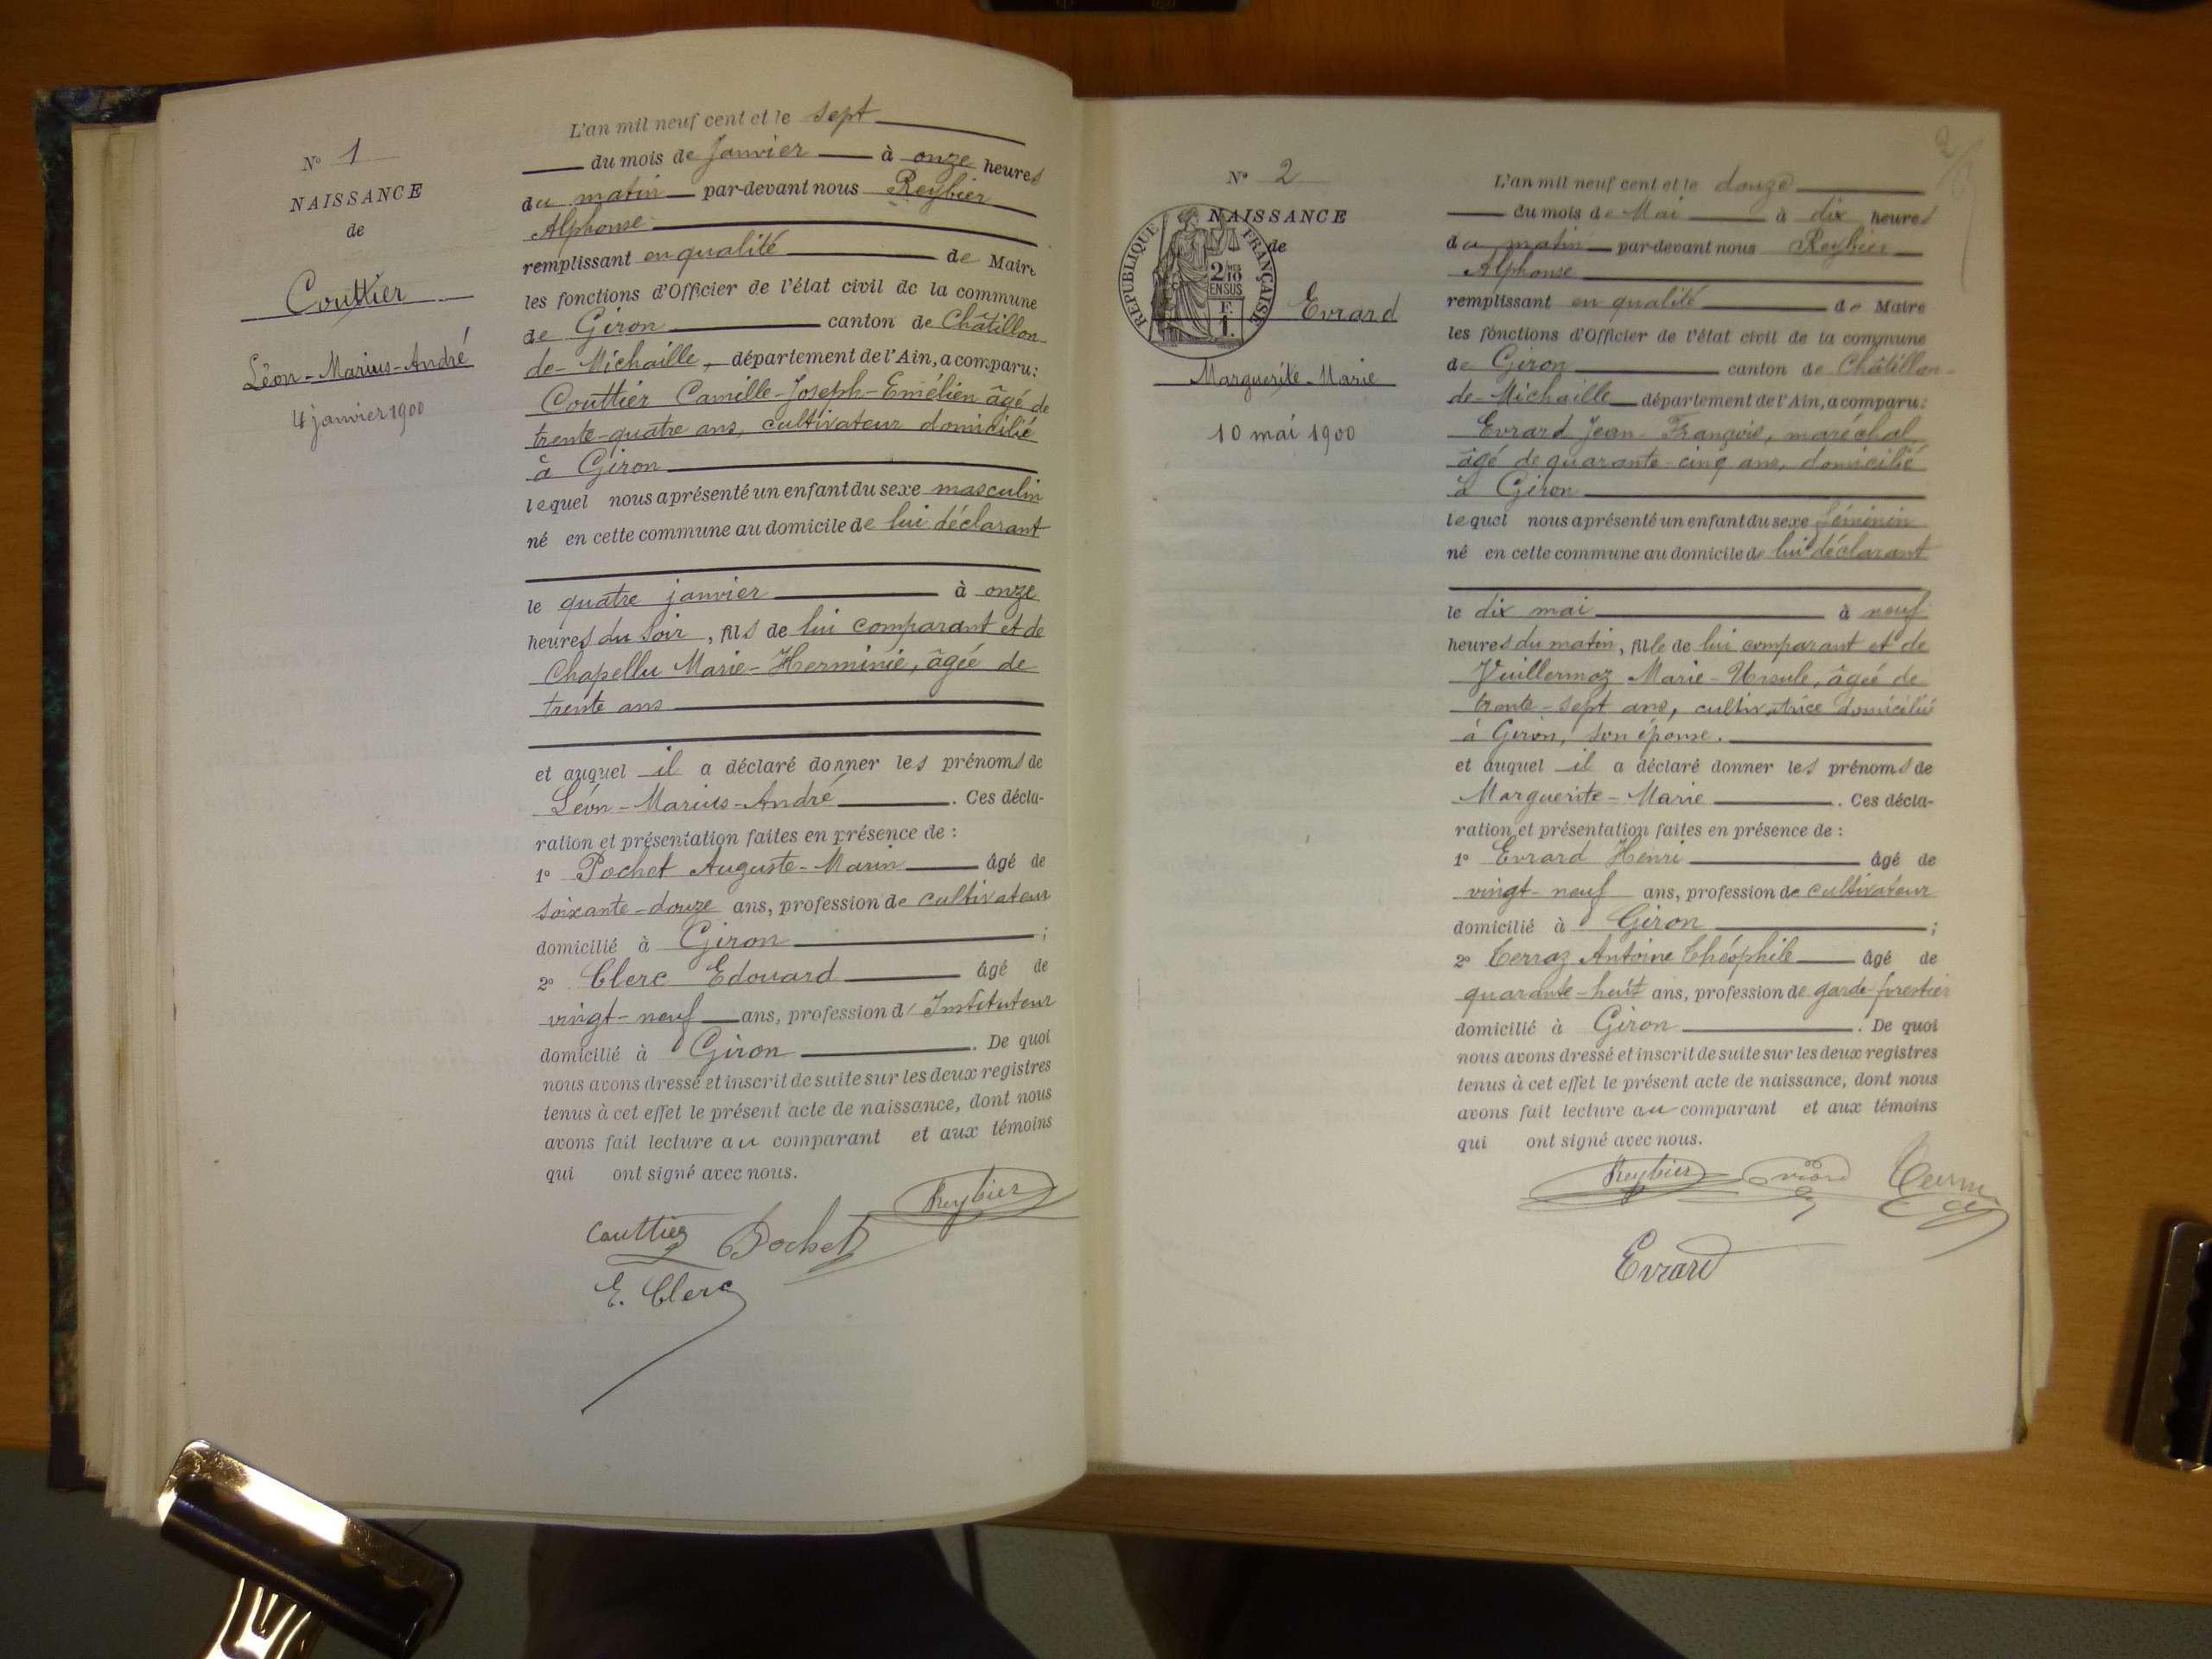 N° 1
NAISSANCE
de
Couttier
Léon-Marius-André
4 janvier 1900
L'an mil neuf cent et le sept
du mois de Janvier à onze heures
du matin par-devant nous Reybier
Alphonse
remplissant en qualité de Maire
les fonctions d'Officier de l'état civil de la commune
de Giron canton de Châtillon-
de-Michaille, département de l'Ain, a comparu:
Couttier Camille-Joseph-Emélien âgé de
trente-quatre ans, cultivateur domicilié
à Giron
lequel nous a présenté un enfant du sexe masculin
né en cette commune au domicile de lui déclarant
le quatre janvier à onze
heures du soir, fils de lui comparant et de
Chapellu Marie-Herminie, âgée de
trente ans
et auquel il a déclaré donner les prénoms de
Léon-Marius-André. Ces décla-
ration et présentation faites en présence de :
1° Pochet Auguste-Marin âgé de
soixante-douze ans, profession de cultivateur
domicilié à Giron ;
2° Clerc Edouard âgé de
vingt-neuf ans, profession d'Instituteur
domicilié à Giron. De quoi
nous avons dressé et inscrit de suite sur les deux registres
tenus à cet effet le présent acte de naissance, dont nous
avons fait lecture au comparant et aux témoins
qui ont signé avec nous.
Reybier
Couttier Pochet
E. Clerc
2
N° 2
NAISSANCE
de
RÉPUBLIQUE FRANÇAISE
2/10
EN SUS
F.
1.
Evrard
Marguerite-Marie
10 mai 1900
L'an mil neuf cent et le douze
du mois de Mai à dix heures
du matin par-devant nous Reybier
Alphonse
remplissant en qualité de Maire
les fonctions d'Officier de l'état civil de la commune
de Giron canton de Châtillon-
de-Michaille département de l'Ain, a comparu:
Evrard Jean-François, maréchal,
âgé de quarante-cinq ans, domicilié
à Giron
lequel nous a présenté un enfant du sexe féminin
né en cette commune au domicile de lui déclarant
le dix mai à neuf
heures du matin, fille de lui comparant et de
Vuillermoz Marie-Ursule, âgée de
trente-sept ans, cultivatrice domiciliée
à Giron, son épouse.
et auquel il a déclaré donner les prénoms de
Marguerite-Marie. Ces décla-
ration et présentation faites en présence de :
1° Evrard Henri âgé de
vingt-neuf ans, profession de cultivateur
domicilié à Giron ;
2° Terraz Antoine Théophile âgé de
quarante-huit ans, profession de garde forestier
domicilié à Giron. De quoi
nous avons dressé et inscrit de suite sur les deux registres
tenus à cet effet le présent acte de naissance, dont nous
avons fait lecture au comparant et aux témoins
qui ont signé avec nous.
Reybier
Evrard